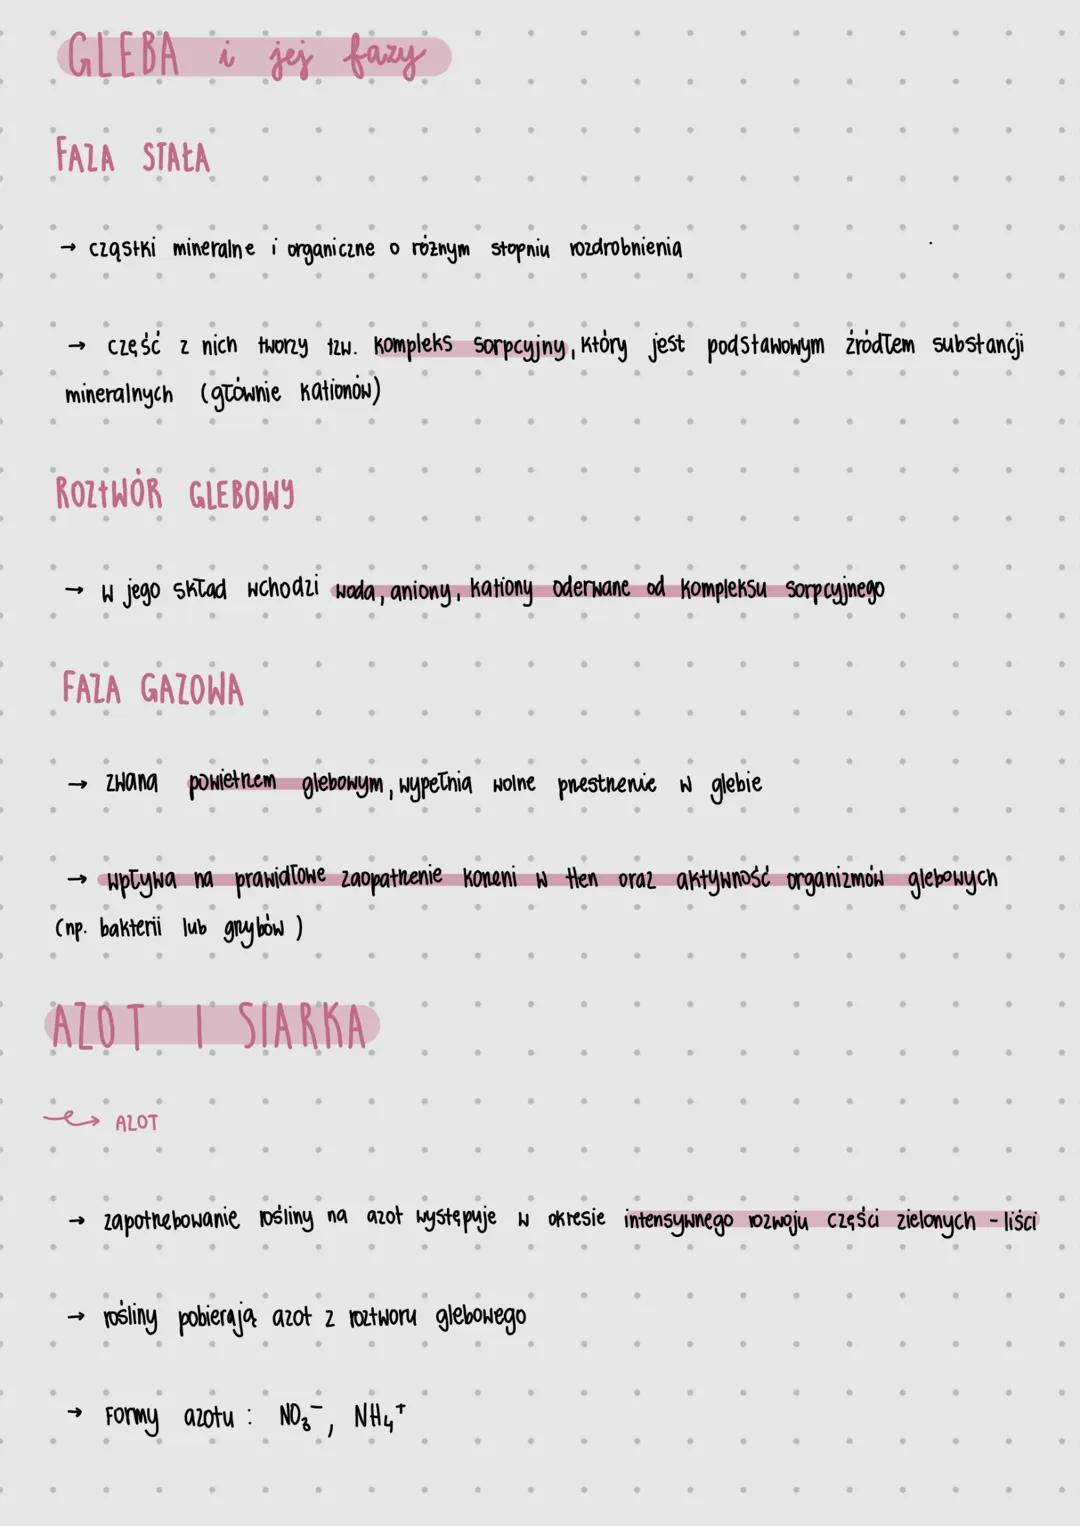 GLEBA i jej fazy
FAZA STAŁA
→ cząstki mineralne i organiczne o różnym stopniu rozdrobnienia
→ część z nich tworzy tzw. kompleks sorpcyjny, który jest podstawowym źródłem substancji
mineralnych (głównie kationów)
ROZTWÓR GLEBOWY
→ w jego skład wchodzi woda, aniony, kationy oderwane od kompleksu sorpcyjnego
FAZA GAZOWA
→ zwana powietrzem glebowym, wypełnia wolne przestrzenie w glebie
→ wpływa na prawidłowe zaopatrzenie korzeni w tlen oraz aktywność organizmów glebowych
(np. bakterii lub grzybów)
AZOT I SIARKA
AZOT
→ zapotrzebowanie rośliny na azot występuje w okresie intensywnego rozwoju części zielonych - liści
→ rośliny pobierają azot z roztworu glebowego
→ Formy azotu : NO₃⁻, NH₄⁺